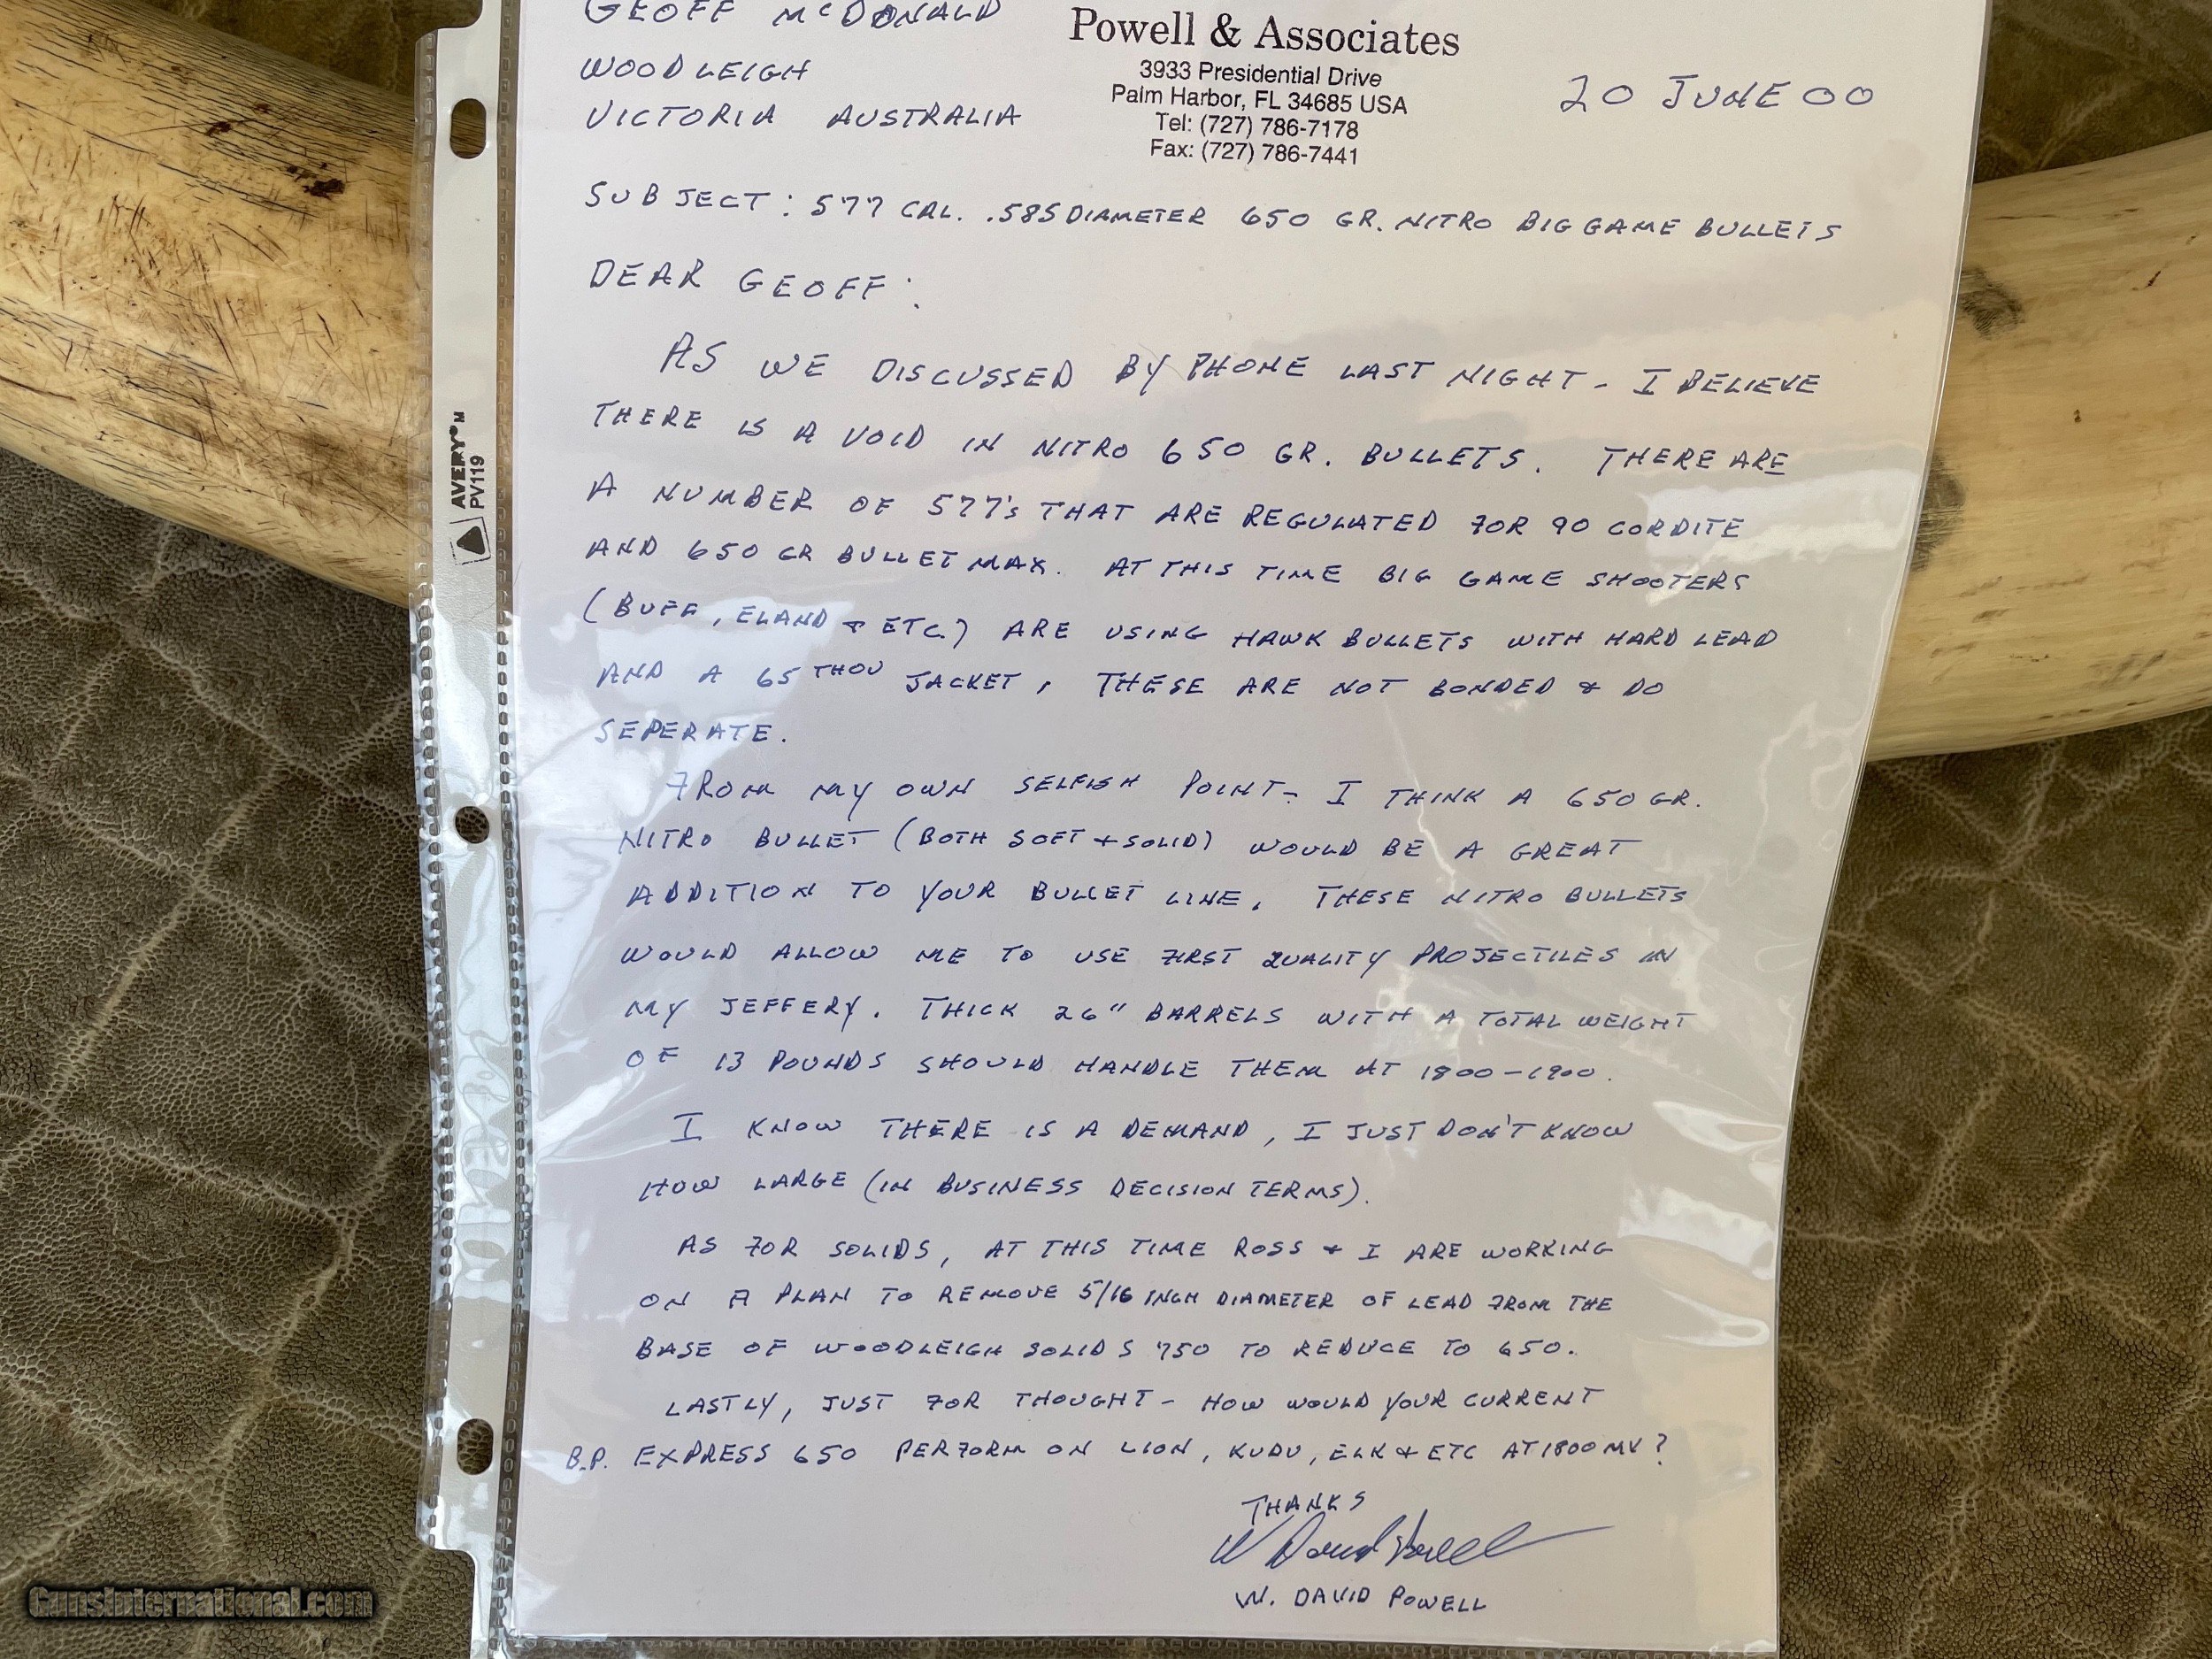 GEOFF McDONALD
WOODLEIGH
VICTORIA AUSTRALIA
Powell & Associates
3933 Presidential Drive
Palm Harbor, FL 34685 USA
Tel: (727) 786-7178
Fax: (727) 786-7441
20 JUNE 00
SUBJECT: 577 CAL. .585 DIAMETER 650 GR. NITRO BIG GAME BULLETS
DEAR GEOFF:
AS WE DISCUSSED BY PHONE LAST NIGHT - I BELIEVE
THERE IS A VOID IN NITRO 650 GR. BULLETS. THERE ARE
A NUMBER OF 577's THAT ARE REGULATED FOR 90 CORDITE
AND 650 GR BULLET MAX. AT THIS TIME BIG GAME SHOOTERS
(BUFF, ELAND & ETC.) ARE USING HAWK BULLETS WITH HARD LEAD
AND A 65 THOU JACKET, THESE ARE NOT BONDED & DO
SEPERATE.
FROM MY OWN SELFISH POINT - I THINK A 650 GR.
NITRO BULLET (BOTH SOFT + SOLID) WOULD BE A GREAT
ADDITION TO YOUR BULLET LINE. THESE NITRO BULLETS
WOULD ALLOW ME TO USE FIRST QUALITY PROJECTILES IN
MY JEFFERY. THICK 26" BARRELS WITH A TOTAL WEIGHT
OF 13 POUNDS SHOULD HANDLE THEM AT 1800-1900.
I KNOW THERE IS A DEMAND, I JUST DON'T KNOW
HOW LARGE (IN BUSINESS DECISION TERMS).
AS FOR SOLIDS, AT THIS TIME ROSS & I ARE WORKING
ON A PLAN TO REMOVE 5/16 INCH DIAMETER OF LEAD FROM THE
BASE OF WOODLEIGH SOLIDS 750 TO REDUCE TO 650.
LASTLY, JUST FOR THOUGHT - HOW WOULD YOUR CURRENT
B.P. EXPRESS 650 PERFORM ON LION, KUDU, ELK & ETC AT 1800 MV?
THANKS
W David Powell
W. DAVID POWELL
AVERY® M
PV119
GunsInternational.com